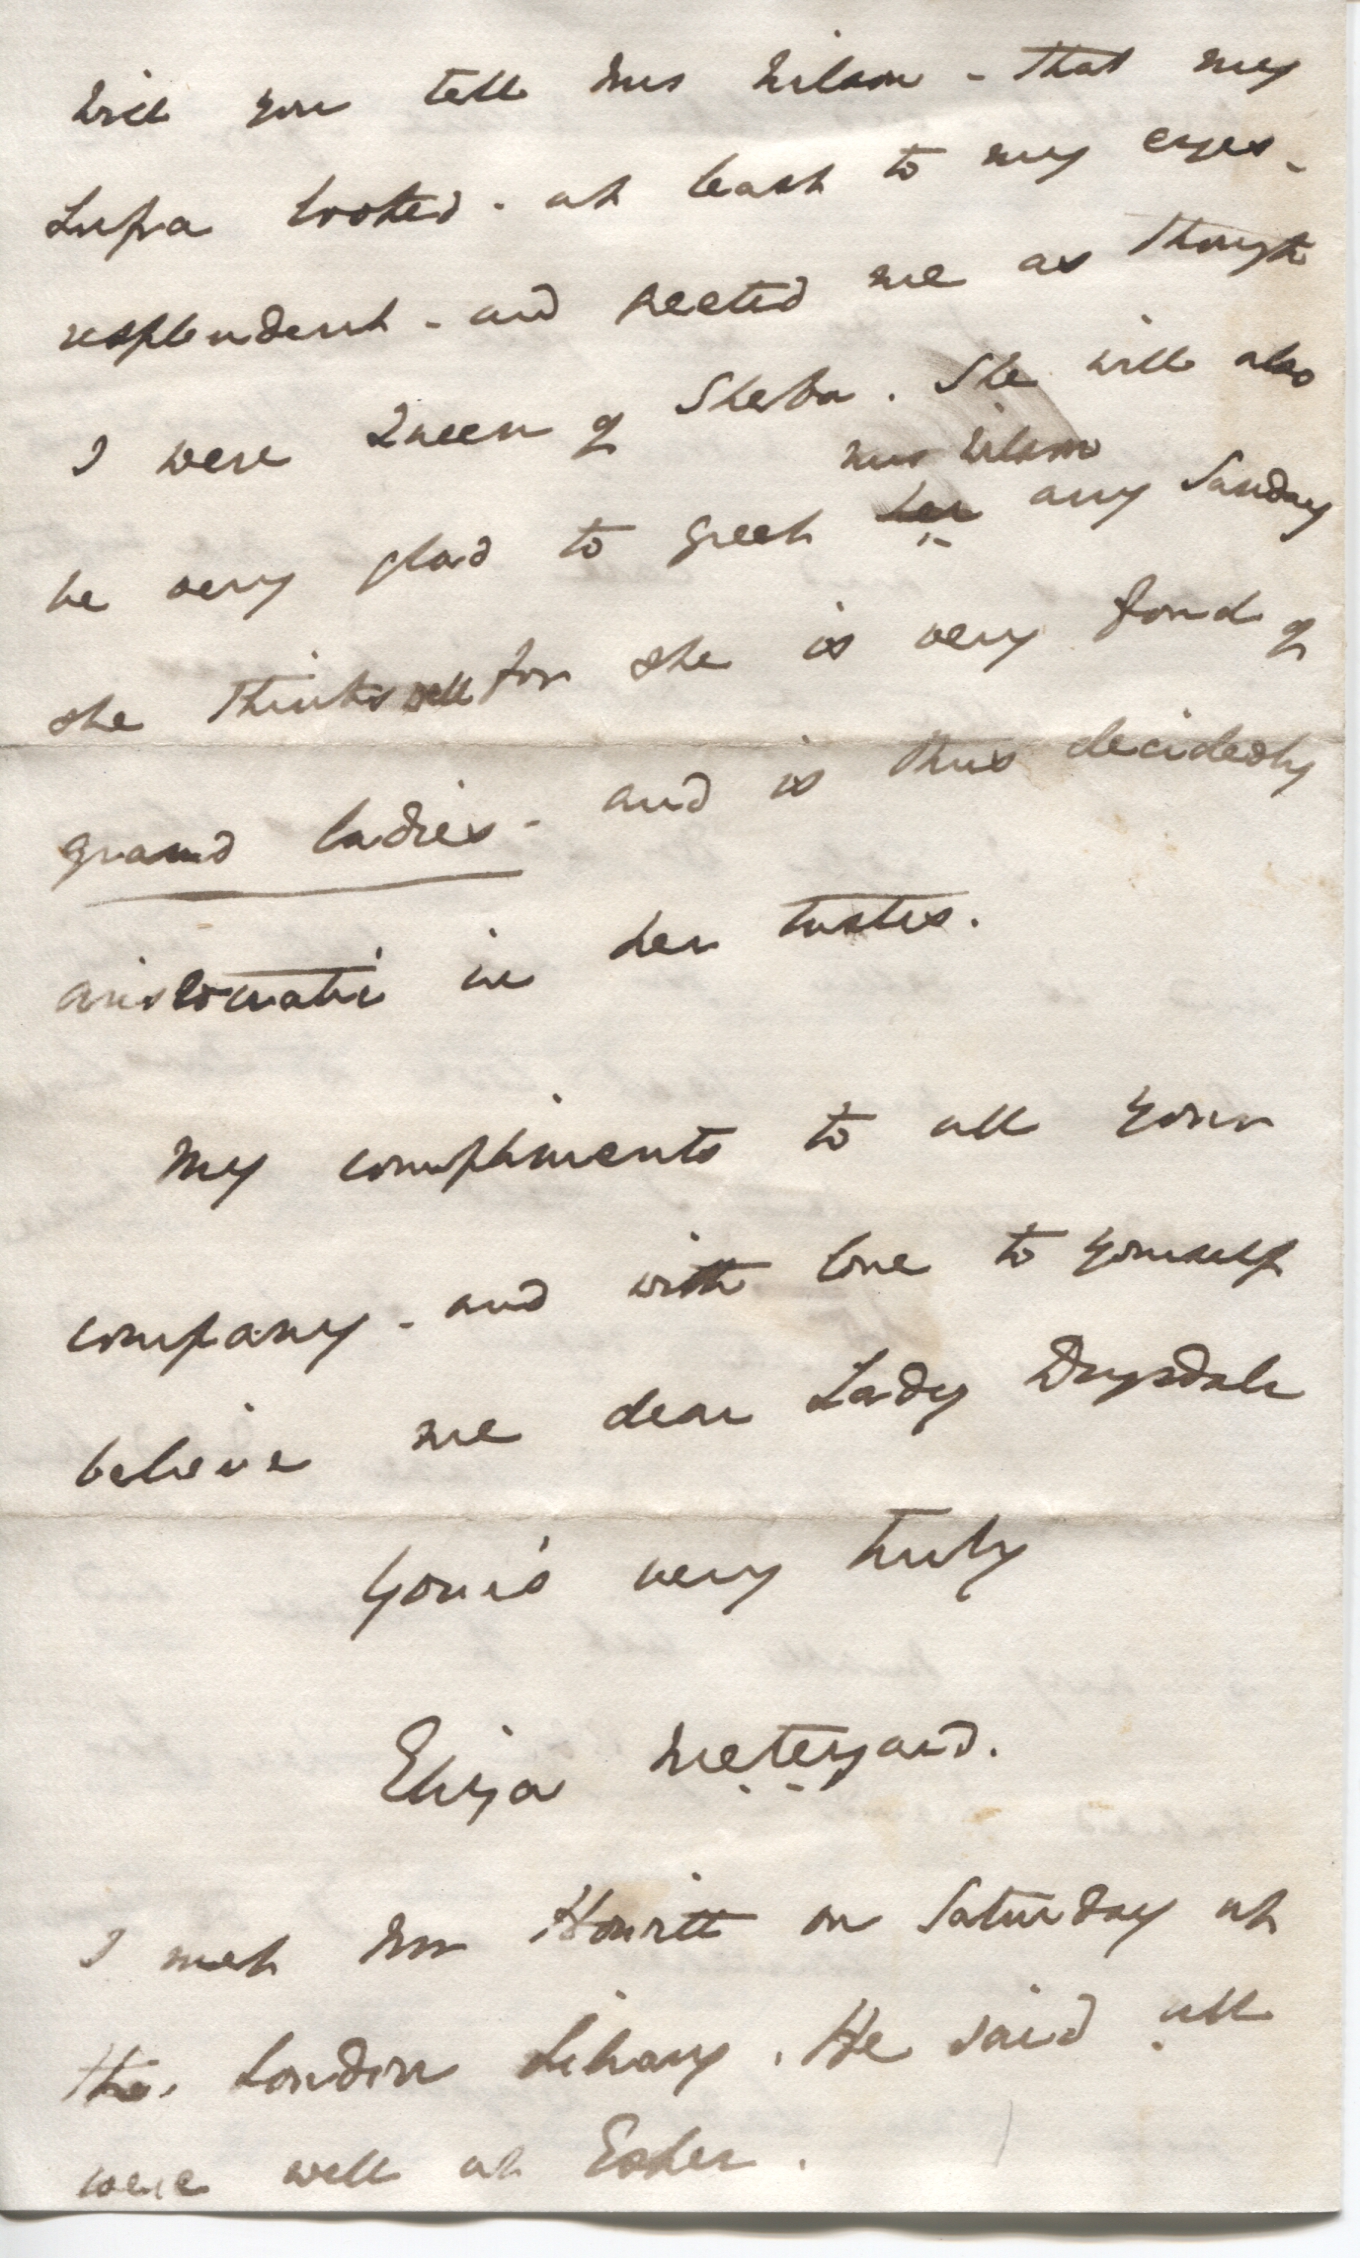 Will you tell Mrs Wilson - that my
Lupa looked - at least to my eyes -
resplendent - and greeted me as though
I were Queen of Sheba. She will also
Mrs Wilson
be very glad to greet her any Sunday
she thinks well for she is very fond of
grand ladies - and is thus decidedly
aristocratic in her tastes.
My compliments to all your
company - and with love to yourself
believe me dear Lady Drysdale
Your's very truly
Eliza Meteyard.
I met Mr Howitt on Saturday at
the London Library. He said all
were well at Esher.